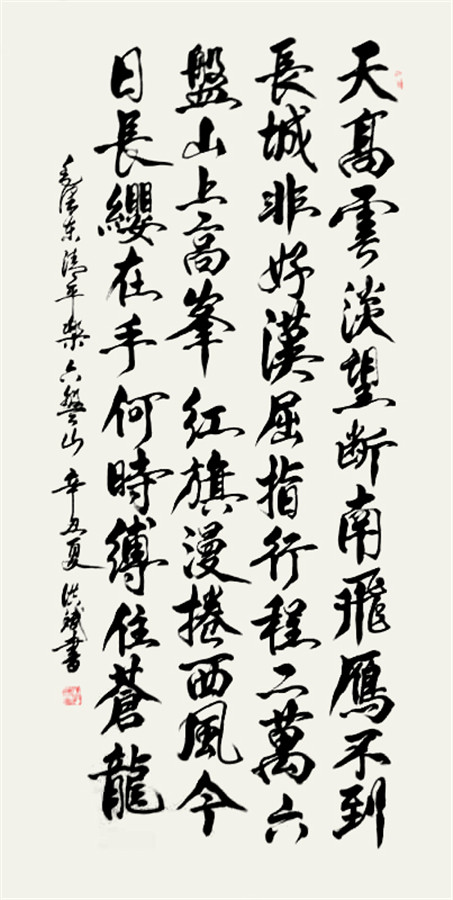 天高雲淡望断南飛鴈不到
長城非好漢屈指行程二萬六
盤山上高峯紅旗漫捲西風今
日長纓在手何時縛住蒼龍
毛澤东清平樂六盤山辛丑夏洪斌書